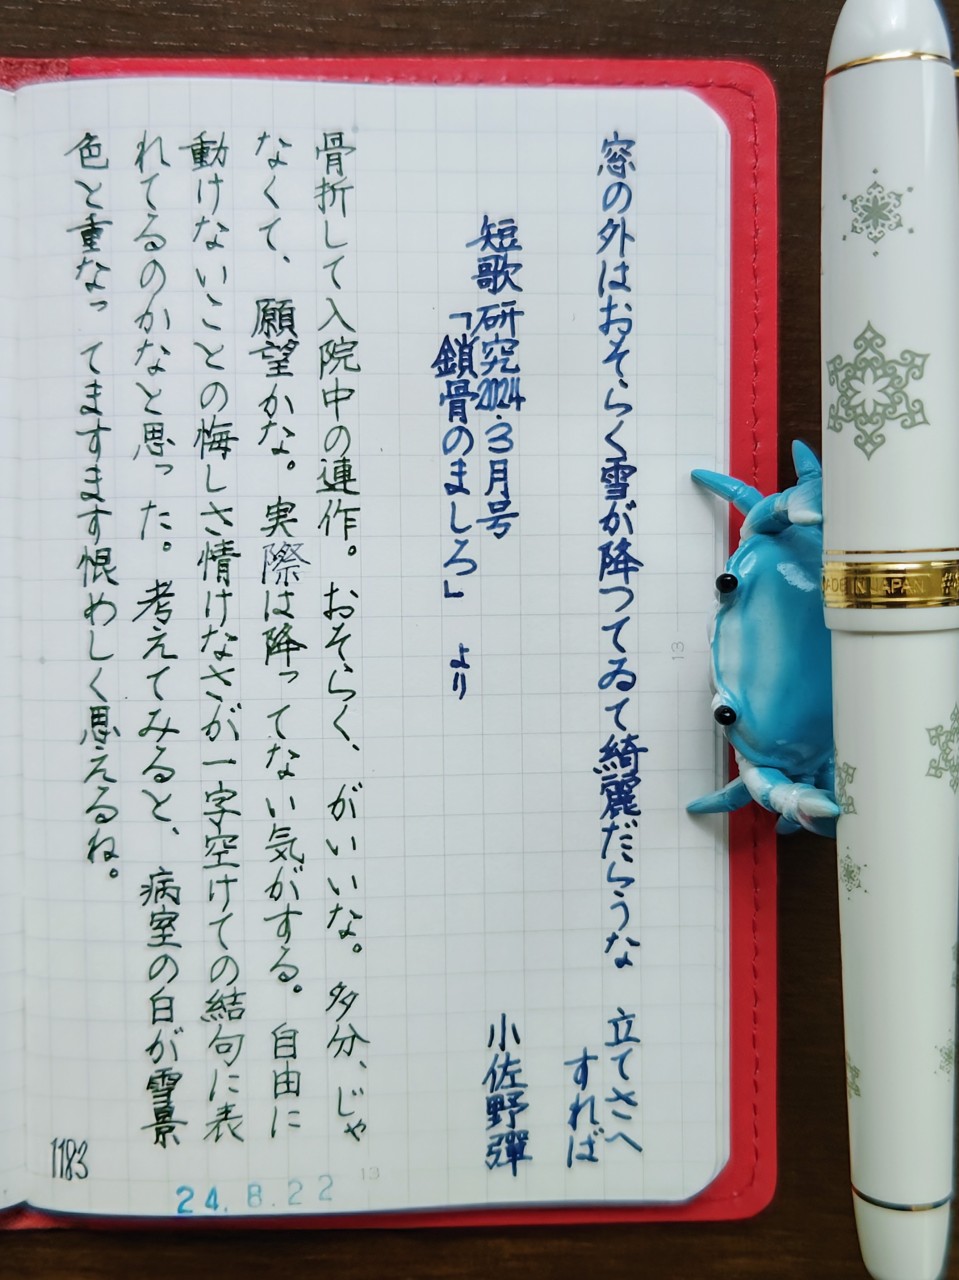 窓の外はおそらく雪が降つてゐて綺麗だらうな　立てさへ
すれば
短歌研究2024.3月号　小佐野彈
「鎖骨のましろ」より
骨折して入院中の連作。おそらく、がいいな。多分、じゃ
なくて、願望かな。実際は降ってない気がする。自由に
動けないことの悔しさ情けなさが一字空けての結句に表
れてるのかなと思った。考えてみると、病室の白が雪景
色と重なってますます恨めしく思えるね。
1183
24.8.22
13
13
MADE IN JAPAN